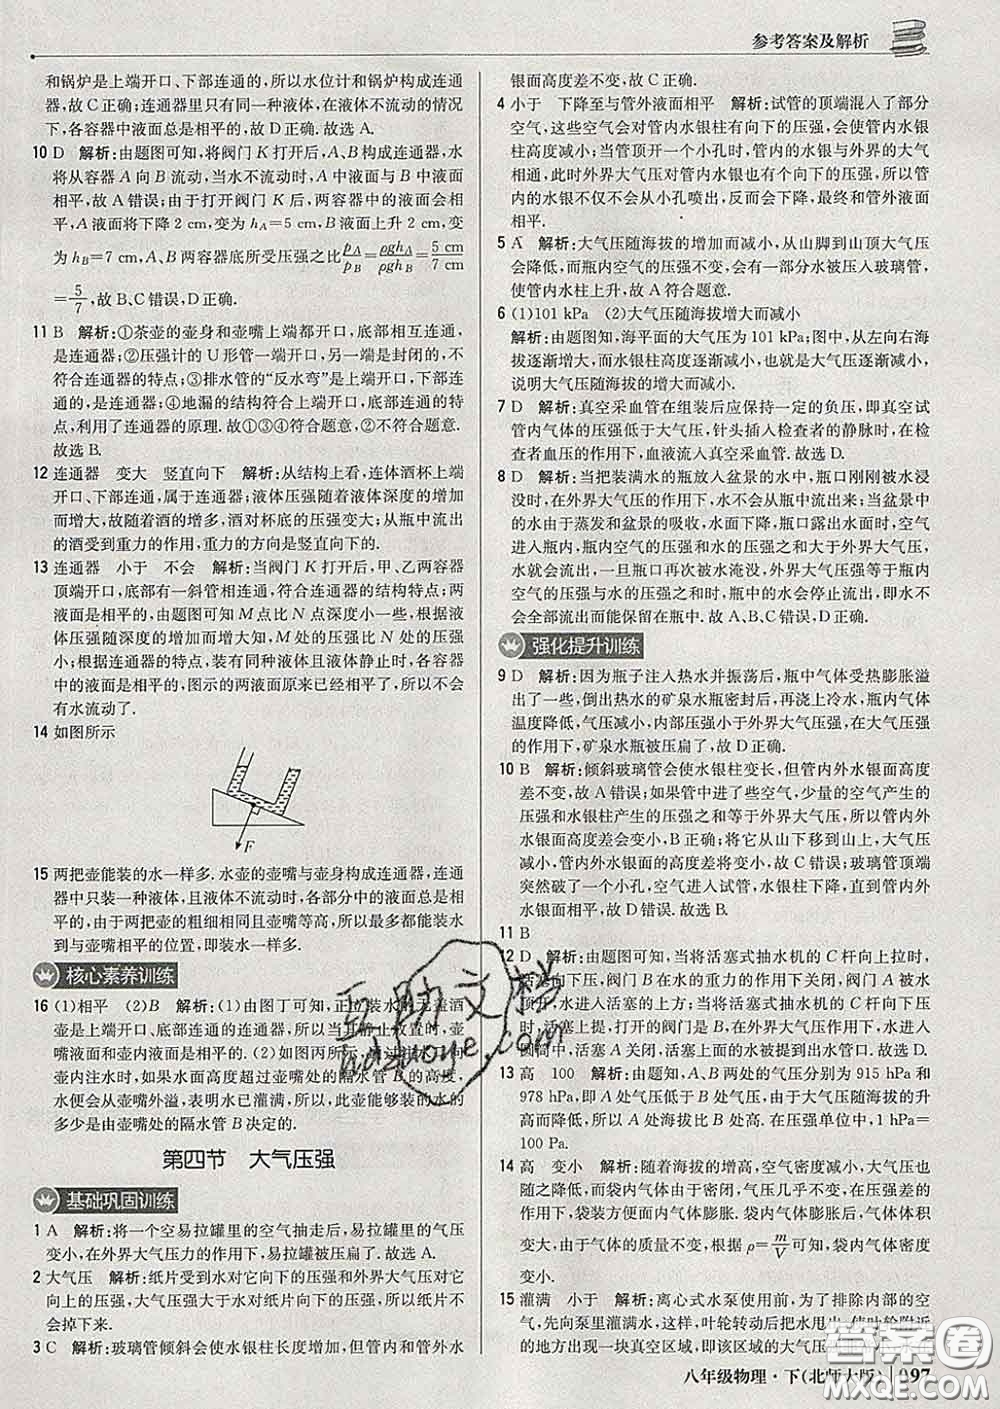 参考答案及解析
和锅炉是上端开口、下部连通的,所以水位计和锅炉构成连通
器,故C正确;连通器里只有同一种液体,在液体不流动的情况
下,各容器中液面总是相平的,故D正确.故选A.
10 D 解析:由题图可知,将阀门K打开后,A、B构成连通器,水
将从容器A向B流动,当水不流动时,A中液面与B中液面
相平,故A错误;由于打开阀门K,两容器中的液面最终会相
平,A液面将下降2 cm,变为hA=5 cm,B液面上升2 cm,变
为hB=7 cm,A、B两容器底所受压强之比pA/pB=ρghA/ρghB=5 cm/7 cm
=5/7,故B、C错误,D正确.
11 B 解析:①茶壶的壶身和壶嘴上端都开口,底部相互连通,
是连通器;②压强计的U形管一端开口,另一端是封闭的,不
符合连通器的特点;③排水管的“反水弯”是上端开口、下部连
通的,是连通器;④地漏的结构符合上端开口、底部连通的特
点,利用了连通器的原理.故①③④符合题意,②不符合题意.
故选B.
12 连通器 变大 竖直向下 解析:从结构上看,连体酒杯上端
开口、下部连通,属于连通器;液体压强随着液体深度的增加
而增大,故随着酒的增多,酒对杯底的压强变大;从瓶中流出
的酒受到重力的作用,重力的方向是竖直向下的.
13 连通器 小于 不会 解析:当阀门K打开后,甲、乙两容器
顶端开口,底部有一斜管相连通,符合连通器的结构特点;两
液面是相平的,由题图可知M点比N点深度小一些,根据液
体压强随深度的增加而增大知,M处的压强比N处的压强
小;根据连通器的特点,装有同种液体且液体静止时,各容器中
的液面是相平的,图示的两液面原来已经相平了,所以不会
有水流动了.
14 如图所示
F
15 两把壶能装的水一样多.水壶的壶嘴与壶身构成连通器,连通
器中只装一种液体,且液体不流动时,各部分中的液面是相平
的,由于两把壶的粗细相同且壶嘴等高,所以最多都能装水
到与壶嘴相平的位置,即装水一样多.
核心素养训练
16 (1)相平 (2)B 解析:(1)由图丁可知,正立装水的无盖酒
壶是上端开口、底部连通的连通器,所以当其静止放置时,壶
嘴液面和壶内液面是相平的.(2)如图丙所示,通过注水口向
壶内注水时,如果水面高度超过壶嘴处的隔水管B的高度,
水就会从壶嘴外溢,表明水已灌满,所以此壶能够装的水的
多少是由壶嘴处的隔水管B决定的.
第四节 大气压强
基础巩固训练
1 A 解析:将一个空易拉罐里的空气抽走后,易拉罐里的气压
变小,在外界大气压力的作用下,易拉罐被压扁了.故选A.
2 大气压 解析:纸片受到水对它向下的压强和外界大气压对它
向上的压强,大气压强大于水对纸片的向下的压强,所以纸片不
会掉下来.
3 C 解析:玻璃管倾斜会使水银柱长度增加,但管内与管外水
银面高度差不变,故C正确.
4 小于 下降至与管外液面相平 解析:试管的顶端混入了部分
空气,这些空气会对管内水银柱有向下的压强,会使管内水银
柱高度减小;当管顶开一个小孔时,管内的水银与外界的大气
相通,此时外界大气压强对管内水银柱也有向下的压强,所以管
内的水银不仅不会从小孔喷出,反而会下降,最终和管外液面
相平.
5 A 解析:大气压随海拔的增加而减小,从山脚到山顶大气压
会降低,而瓶内空气的压强不变,会有更多的水被压入玻璃管,
管内水柱上升,故A符合题意.
6 (1)101 kPa (2)大气压随海拔增大而减小
解析:由题图知,海平面的大气压为101 kPa;图中,从左向右海
拔逐渐增大,而水银柱高度逐渐减小,也就是大气压逐渐减小,
说明大气压随海拔的增大而减小.
7 D 解析:真空采血管在组装后应保持一定的负压,即真空试
管内气体的压强低于大气压,针头插入检查者的静脉时,在检
查者血压的作用下,血液流入真空采血管.故选D.
8 D 解析:当把装满水的瓶放入盆景的水中,瓶口刚刚被水浸
没时,在外界大气压的作用下,水不会从瓶中流出来;当盆景中
的水由于蒸发和盆景的吸收,水面下降,瓶口露出水面时,空气
进入瓶内,瓶内空气的压强和水的压强之和大于外界大气压,
水就会流出,一旦瓶口再次被水淹没,外界大气压强等于瓶内
空气的压强与水的压强之和时,瓶中的水会停止流出,即水不
会全部流出而能保留在瓶中.故A、B、C错误,D正确.
强化提升训练
9 D 解析:因为瓶子注入热水并振荡后,瓶中气体受热膨胀溢
出了一些,倒出热水的矿泉水瓶密封后,再浇上冷水,瓶内气体
温度降低,气压减小,内部压强小于外界大气压强,在大气压强
的作用下,矿泉水瓶被压扁了,故D正确.
10 B 解析:倾斜玻璃管会使水银柱变长,但管内外水银面高度
差不变,故A错误;如果管中进了些空气,少量的空气产生的
压强和水银柱产生的压强之和等于外界大气压,管内外
水银面高度差会变小,B正确;将它从山下移到山上,大气压
减小,管内外水银面的高度差将变小,故C错误;玻璃管顶端
突然破了一个小孔,空气进入试管,水银柱下降,直到与管外
水银面相平,故D错误.故选B.
11 B
12 D 解析:由题图可知,当将活塞式抽水机的C杆向上拉时,
活塞向下压,阀门B在水的重力的作用下关闭,阀门A被水
顶开,水进入活塞的上方;当将活塞式抽水机的C杆向下压
时,活塞上提,打开的阀门是B,在大气压强的作用下,水进入
圆筒中,活塞A关闭,活塞上面的水迫上升,从出水管口.故选D.
13 高 100 解析:由题知,A、B两处的气压分别为915 hPa和
978 hPa,即A处气压比B处气压低,由于大气压随海拔的升
高而降低,所以A处海拔比B处海拔高;单位换算:1 hPa=
100 Pa.
14 高 变小 解析:随着海拔的增高,空气密度减小,大气压也
随之降低,而食品袋内气体的压强不变,在内、外压强差的作
用下,袋装食品袋内气体膨胀.由于气体膨胀,气体体积
变大,由于气体的质量不变,根据ρ=m/V可知,袋内气体密度
变小.
15 灌满 小于 解析:离心式水泵使用前,为了排除内部的空
气,先向泵里灌满水,这样,叶轮转动后把水甩出,使叶轮附近
八年级物理·下(北师大版) 097
答案圈
MXQE.COM